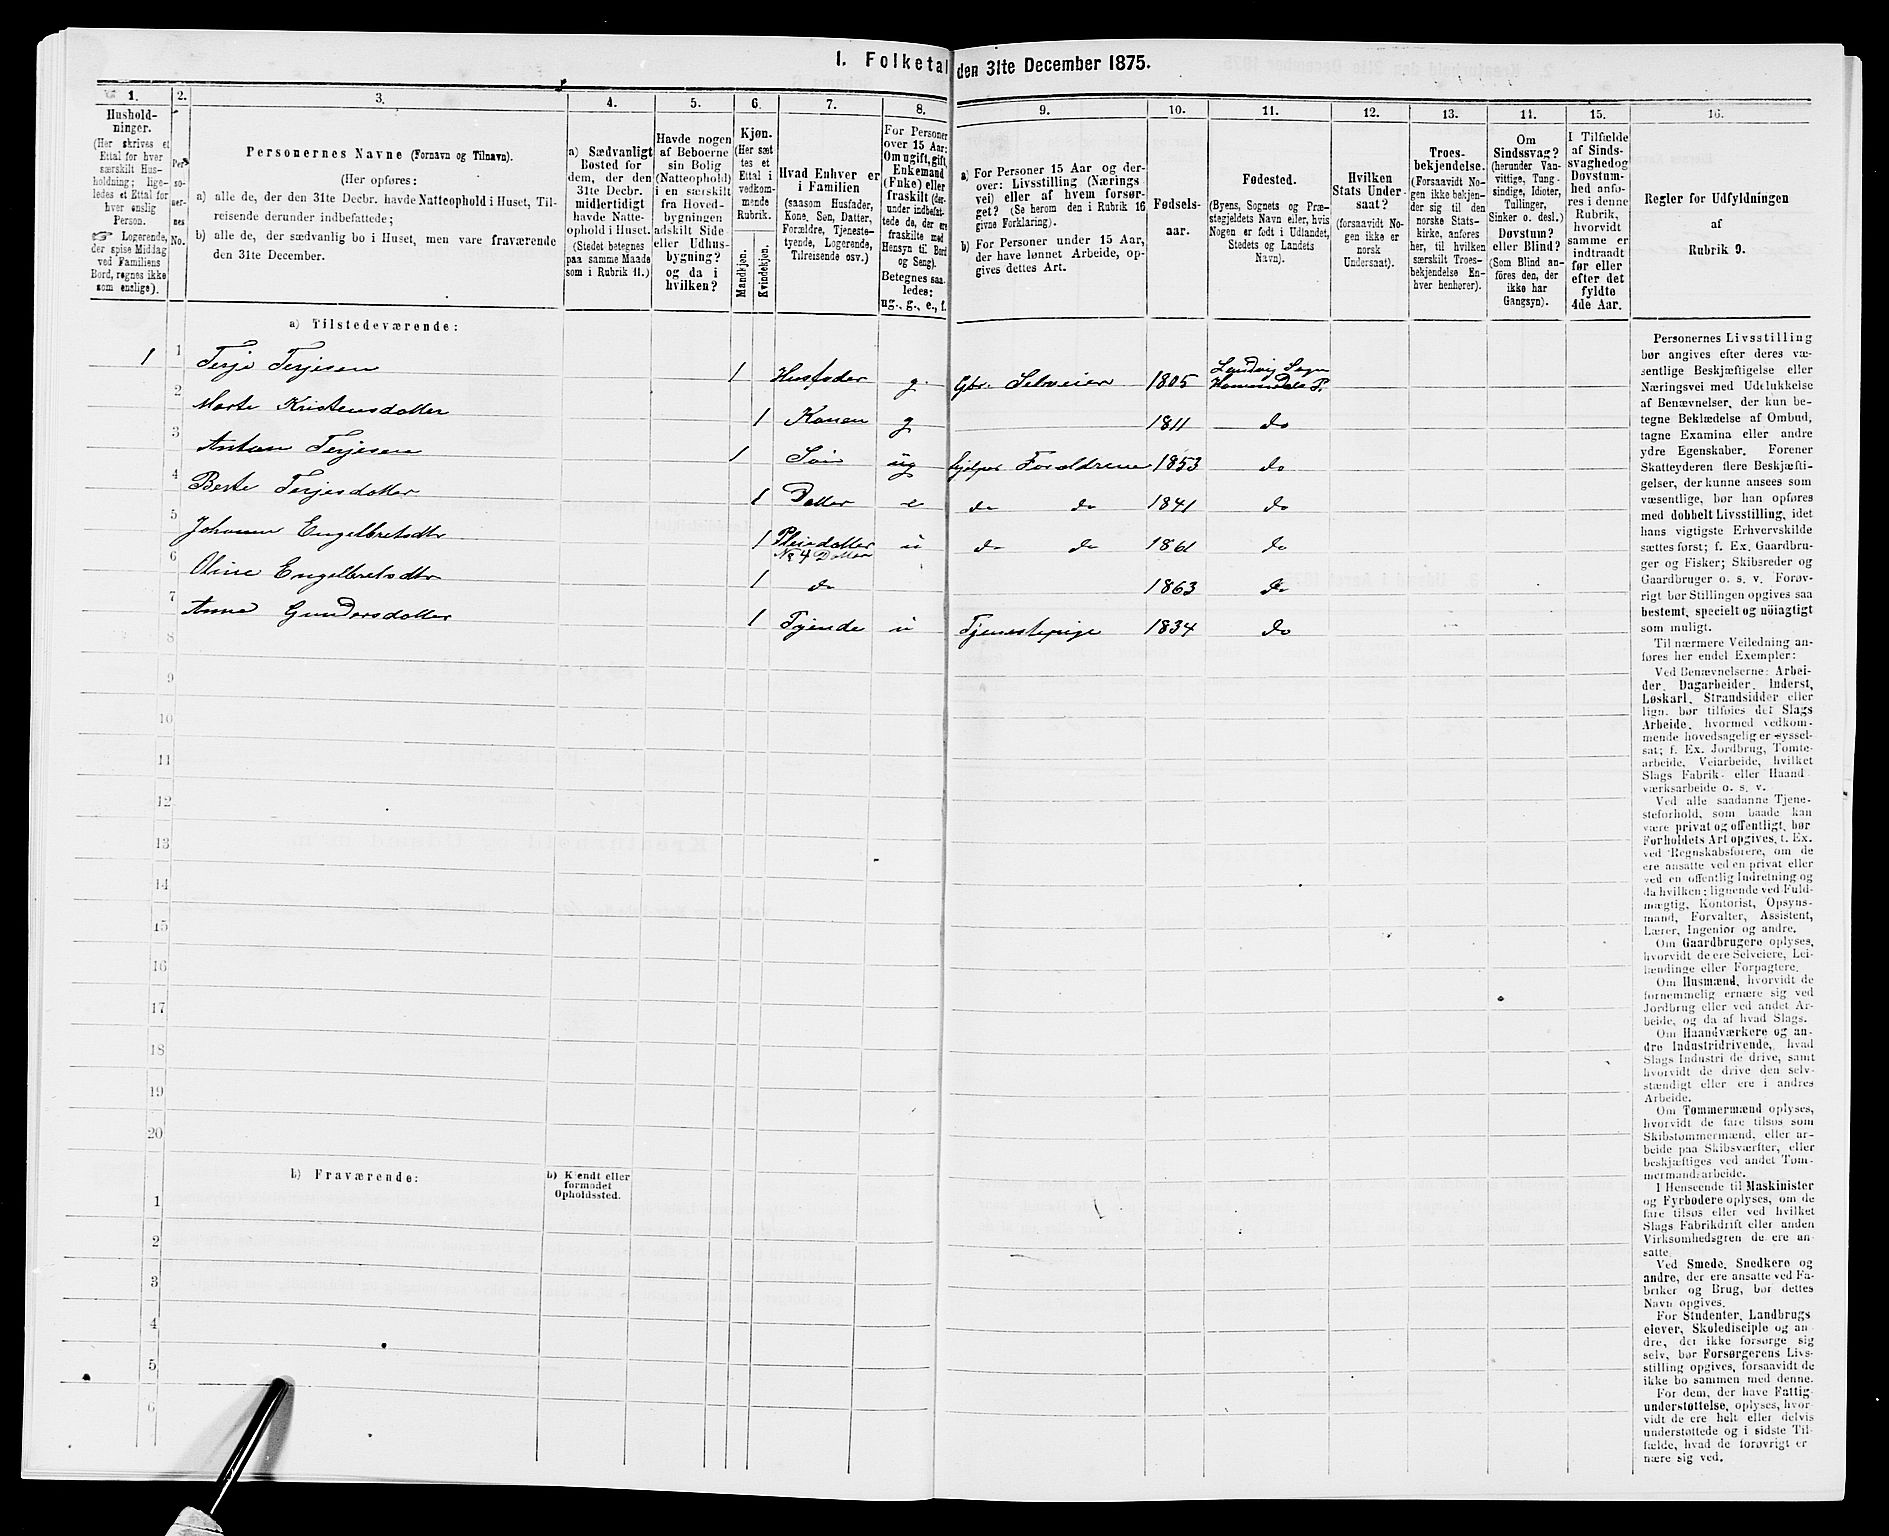 1. Folketal den 31te December 1875.
1. 2. 3. 4. 5. 6. 7. 8. 9. 10. 11. 12. 13. 11. 15. 16.
Hushold-
ninger.
(Her skrives et
Ettal for hver
særskilt Hus-
holdning; lige-
ledes et Ettal for
hver enslig
Person.
☞ Logerende,
der spise Middag
ved Familiens
Bord, regnes ikke
som enslige).
Per-
so-
ner-
nes
No.
Personernes Navne (Fornavn og Tilnavn).
(Her opføres:
a) alle de, der den 31te Decbr. havde Natteophold i Huset, Til-
reisende derunder indbefattede;
b) alle de, der sædvanlig bo i Huset, men vare fraværende
den 31te December.
a) Sædvanligt
Bosted for
dem, der den
31te Decbr.
midlertidigt
havde Natte-
ophold i Huset.
(Stedet betegnes
paa samme Maade
som i Rubrik 11.)
Havde nogen
af Beboerne
sin Bolig
(Natteophold)
i en særskilt
fra Hoved-
bygningen
adskilt Side
eller Udhus-
bygning?
og da i
hvilken?
Kjøn.
(Her sæt
tes et
Ettal i
vedkom-
mende
Rubrik.
Mandkjøn.
Kvindekjøn.
Hvad Enhver er
i Familien
(saasom Husfader,
Kone, Søn, Datter,
Forældre, Tjeneste-
tyende, Logerende,
Tilreisende osv.)
For Personer
over 15 Aar:
Om ugift, gift,
Enkemand
(Enke) eller
fraskilt (der-
under indbefat-
tede de, der ere
fraskilte med
Hensyn til Bord
og Seng).
Betegnes saa-
ledes:
ug., g., e., f.
a) For Personer 15 Aar og der-
over: Livsstilling (Nærings
vei) eller af hvem forsør-
get? (Se herom den i Rubrik 16
givne Forklaring).
b) For Personer under 15 Aar,
der have lønnet Arbeide, op-
gives dettes Art.
Fødsels-
aar.
Fødested.
(Byens, Sognets og Præ-
stegjeldets Navn eller, hvis
Nogen er født i Udlandet,
Stedets og Landets
Navn).
Hvilken
Stats Under-
saat?
(forsaavidt No-
gen ikke er
norsk
Undersaat).
Troes-
bekjendelse.
(Forsaavidt No-
gen ikke bekjen-
der sig til den
norske Stats-
kirke, anføres
her, til hvilken
særskilt Troes-
bekjendelse En-
hver henhører).
Om
Sindssvag?
(herunder Van-
vittige, Tung-
sindige, Idioter,
Tullinger,
Sinker o. desl.)
Døvstum?
eller Blind?
(Som Blind an-
føres den, der
ikke har
Gangsyn).
I Tilfælde
af Sinds-
svaghed og
Døvstum-
hed anfø-
res i denne
Rubrik,
hvorvidt
samme er
indtraadt
før eller
efter det
fyldte
4de Aar.
Regler for Udfyldningen
af
Rubrik 9.
a) Tilstedeværende:
1 1 Terje Terjesen 1 Husfader g. Gbr. Selveier 1805 Landvig Sogn Hommedals P.
2 Marte Kristensdatter 1 Konen g 1811 do
3 Antoan Terjesen 1 Søn ug hjelper Forældrene 1853 do
4 Berte Terjesdatter 1 Datter e do do 1841 do
5 Johanne Engelbretsdtr 1 Pleiedatter No 4 Datter u do do 1861 do
6 Oline Engelbretsdtr 1 do 1863 do
7 Anne Gundersdatter 1 Tjende u Tjenestepige 1834 do
8
9
10
11
12
13
14
15
16
17
18
19
20
b) Fraværende:
b) Kjendt eller
formodet
Opholdssted.
1
2
3
4
5
6
Personernes Livsstilling
bør angives efter deres væ-
sentlige Beskjæftigelse eller
Næringsvei med Udelukkelse
af Benævnelser, der kun be-
tegne Beklædelse af Ombud,
tagne Examina eller andre
ydre Egenskaber. Forener
Skatteyderen flere Beskjæfti-
gelser, der kunne ansees som
væsentlige, bør han opføres
med dobbelt Livsstilling, idet
hans vigtigste Erhvervskilde
sættes først; f. Ex. Gaardbru-
ger og Fisker; Skibsreder og
Gaardbruger o. s. v. Forøv-
rigt bør Stillingen opgives saa
bestemt, specielt og nöiagtigt
som muligt.
Til nærmere Veiledning an-
føres her endel Exempler:
Ved Benævnelserne: Arbei-
der, Dagarbeider, Inderst,
Løskarl, Strandsidder eller
lign. bør tilføies det Slags
Arbeide, hvormed vedkom-
mende hovedsagelig er syssel-
sat; f. Ex. Jordbrug, Tomte-
arbeide, Veiarbeide, hvilket
Slags Fabrik- eller Haand-
værksarbeide o. s. v.
Ved alle saadanne Tjene-
steforhold, som baade kan
være privat og offentligt, bør
Forholdets Art opgives, f. Ex.
ved Regnskabsførere, om de
ere ansatte ved en privat eller
ved en offentlig Indretning og
da hvilken; lignende ved Fuld-
mægtig, Kontorist, Opsyns-
mand, Forvalter, Assistent,
Lærer, Ingeniør og andre.
Om Gaardbrugere oplyses,
hvorvidt de ere Selveiere, Lei-
lændinge eller Forpagtere.
Om Husmænd, hvorvidt de
fornemmelig ernære sig ved
Jordbrug eller ved andet Ar-
beide, og da af hvad Slags.
Om Haandværkere og an-
dre Industridrivende, hvad
Slags Industri de drive, samt
hvorvidt de drive den selv-
stændigt eller ere i andres
Arbeide.
Om Tømmermænd oplyses,
hvorvidt de fare tilsøs som
Skibstømmermænd, eller ar-
beide paa Skibsværfter, eller
beskjæftiges ved andet Tøm-
mermandsarbeide.
I Henseende til Maskinister
og Fyrbødere oplyses, om de
fare tilsøs eller ved hvilket
Slags Fabrikdrift eller anden
Virksomhedsgren de ere an-
satte.
Ved Smede, Snedkere og
andre, der ere ansatte ved Fa-
briker og Brug, bør dettes
Navn opgives.
For Studenter, Landbrugs-
elever, Skoledisciple og an-
dre, der ikke forsørge sig
selv, bør Forsørgerens Livs-
stilling opgives, forsaavidt de
ikke bo sammen med denne.
For dem, der have Fattig-
understøttelse, oplyses, hvor-
vidt de ere helt eller delvis
understøttede og i sidste Til-
fælde, hvad de forøvrigt er-
nære sig ved.